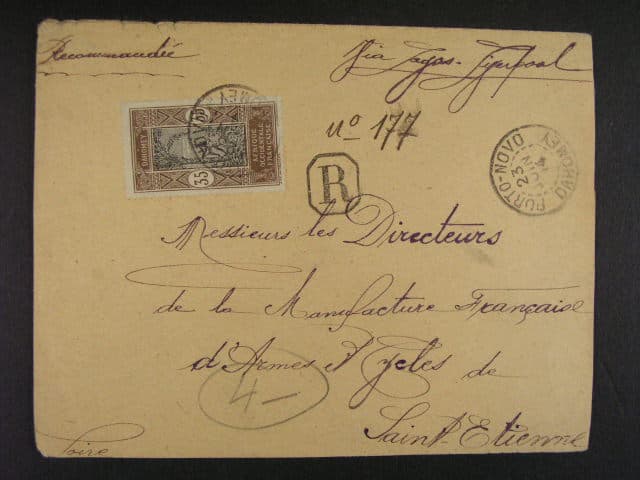 Recommandée
Via Lagos-Liverpool
DAHOMEY
AFRIQUE
OCCIDENTALE
FRANÇAISE
35
35
No 177
R
PORTO-NOVO DAHOMEY
23
Messieurs les Directeurs
de la Manufacture Française
d'Armes et Cycles de
4-
Saint-Etienne
Loire